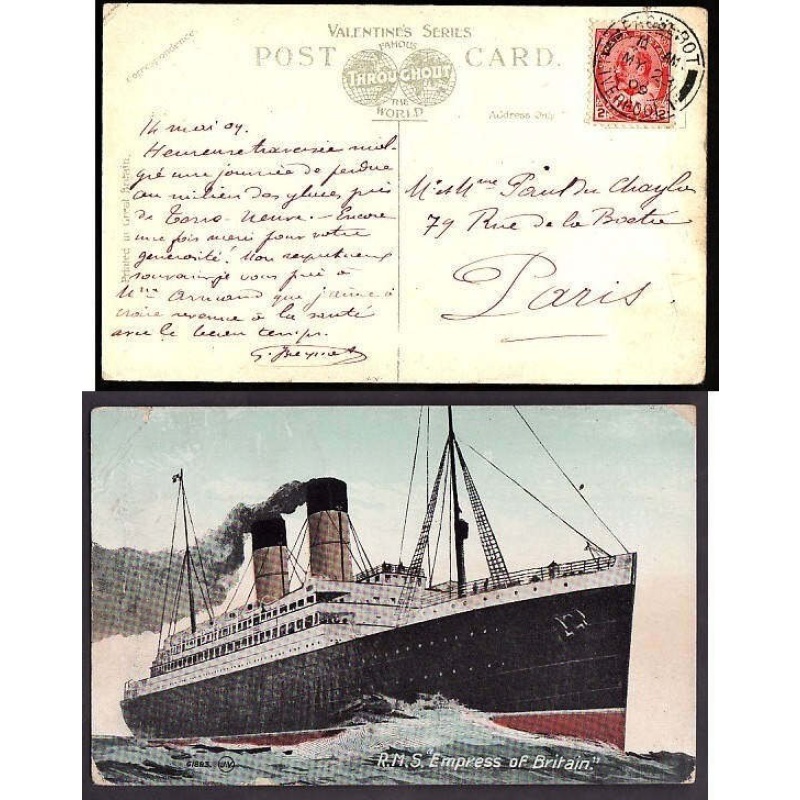 VALENTINE'S SERIES
POST CARD.
FAMOUS
THROUGHOUT
THE
WORLD
Correspondence.
Address Only
Printed in Great Britain.
LIVERPOOL
MY
09
2
2
14 mai 09.
Heureuse traversée mal-
gré une journée de perdue
au milieu des glaces près
de Terre-Neuve. — Encore
une fois merci pour votre
générosité! Mon respectueux
souvenir je vous prie à
Mme Armand que j'aime à
croire revenue à la santé
avec le beau temps.
Mr et Mme Paul du Chaylu
79 Rue de la Boëtie
Paris
61883. (JV)
R.M.S. "Empress of Britain."